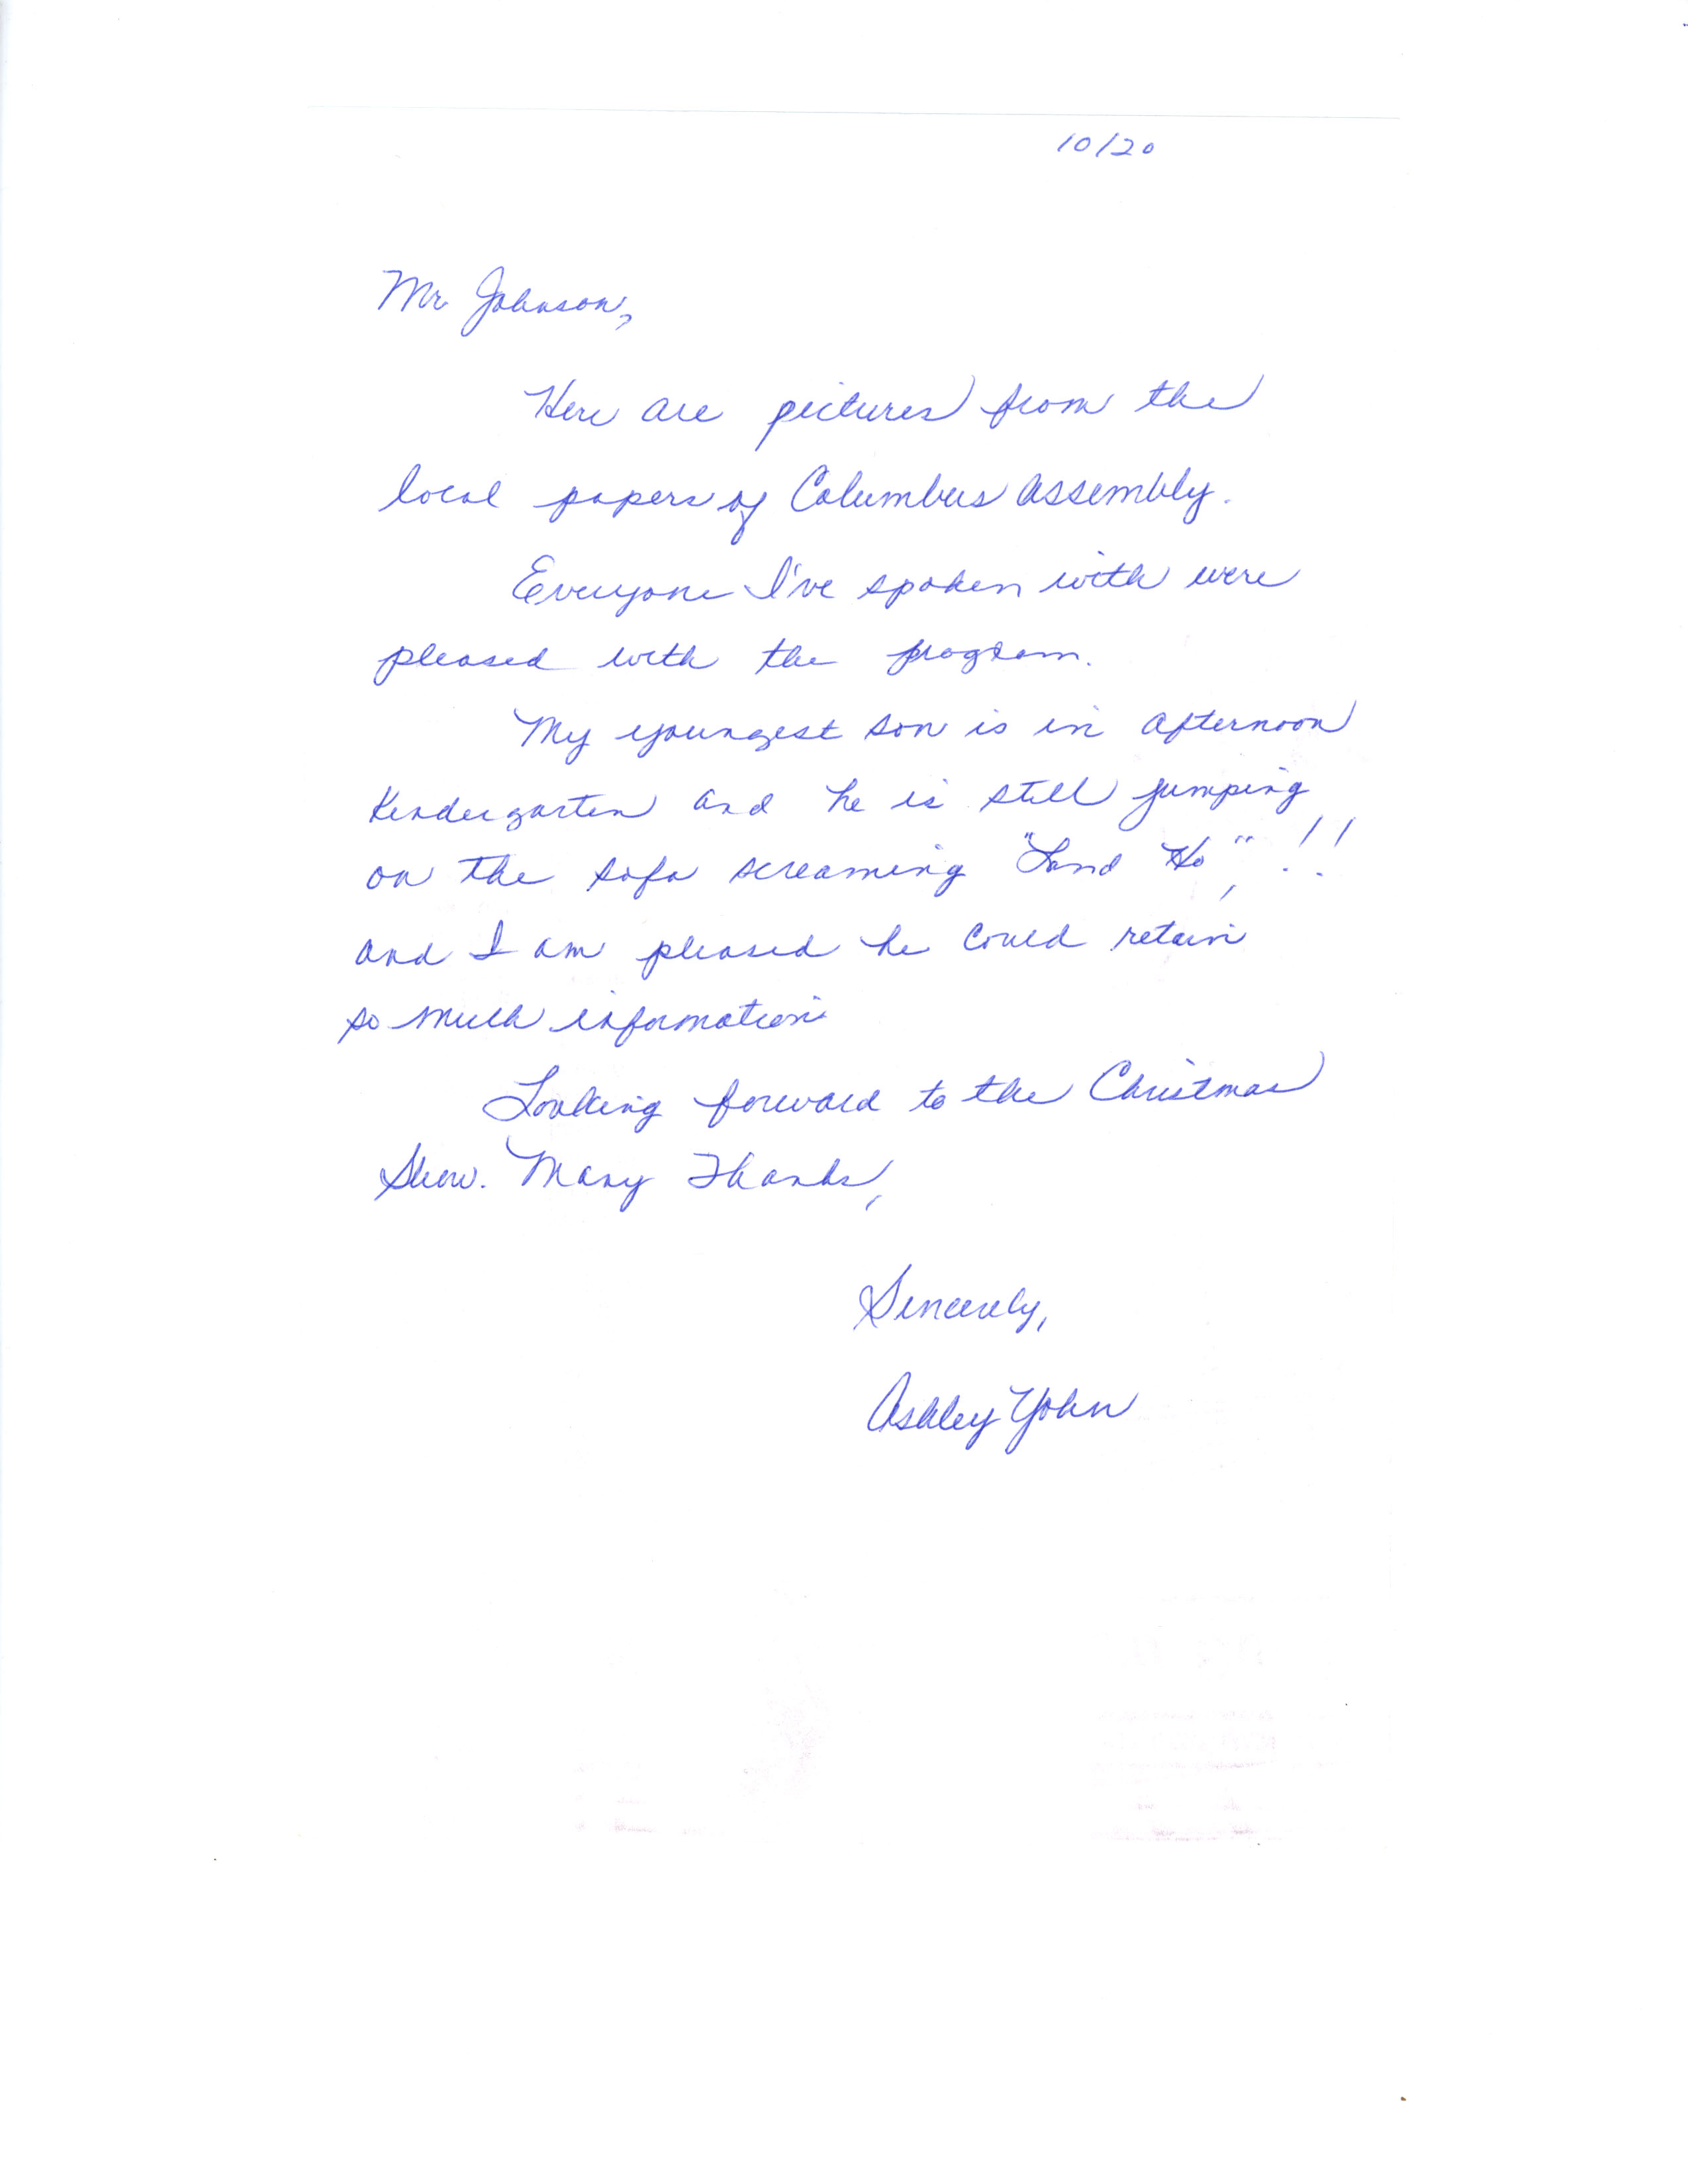 10/20
Mr Johnson,
Here are pictures from the
local papers of Columbus Assembly.
Everyone I've spoken with were
pleased with the program.
My youngest son is in afternoon
Kindergarten and he is still jumping
on the sofa screaming "Land Ho", !!
and I am pleased he could retain
so much information
Looking forward to the Christmas
Show. Many Thanks,
Sincerely,
Ashley Yohn